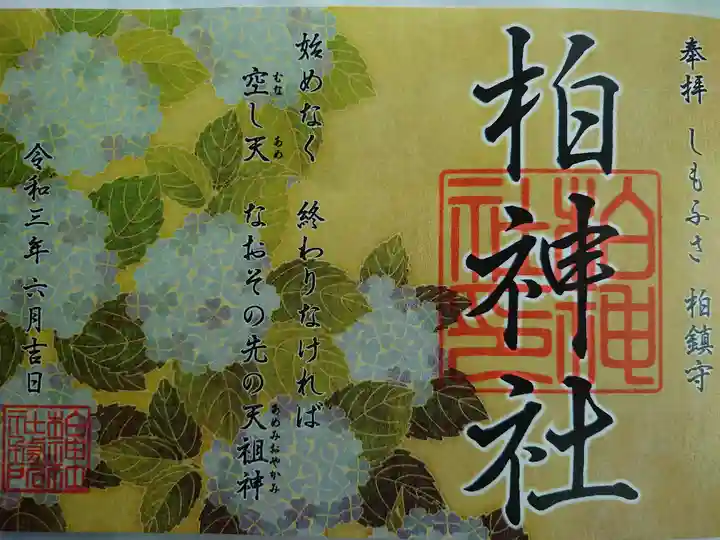 奉拝 しもふさ 柏鎮守
柏神社
始めなく 終わりなければ
空し天 なおその先の天祖神
むな
あめ
あめみおやかみ
令和三年 六月吉日